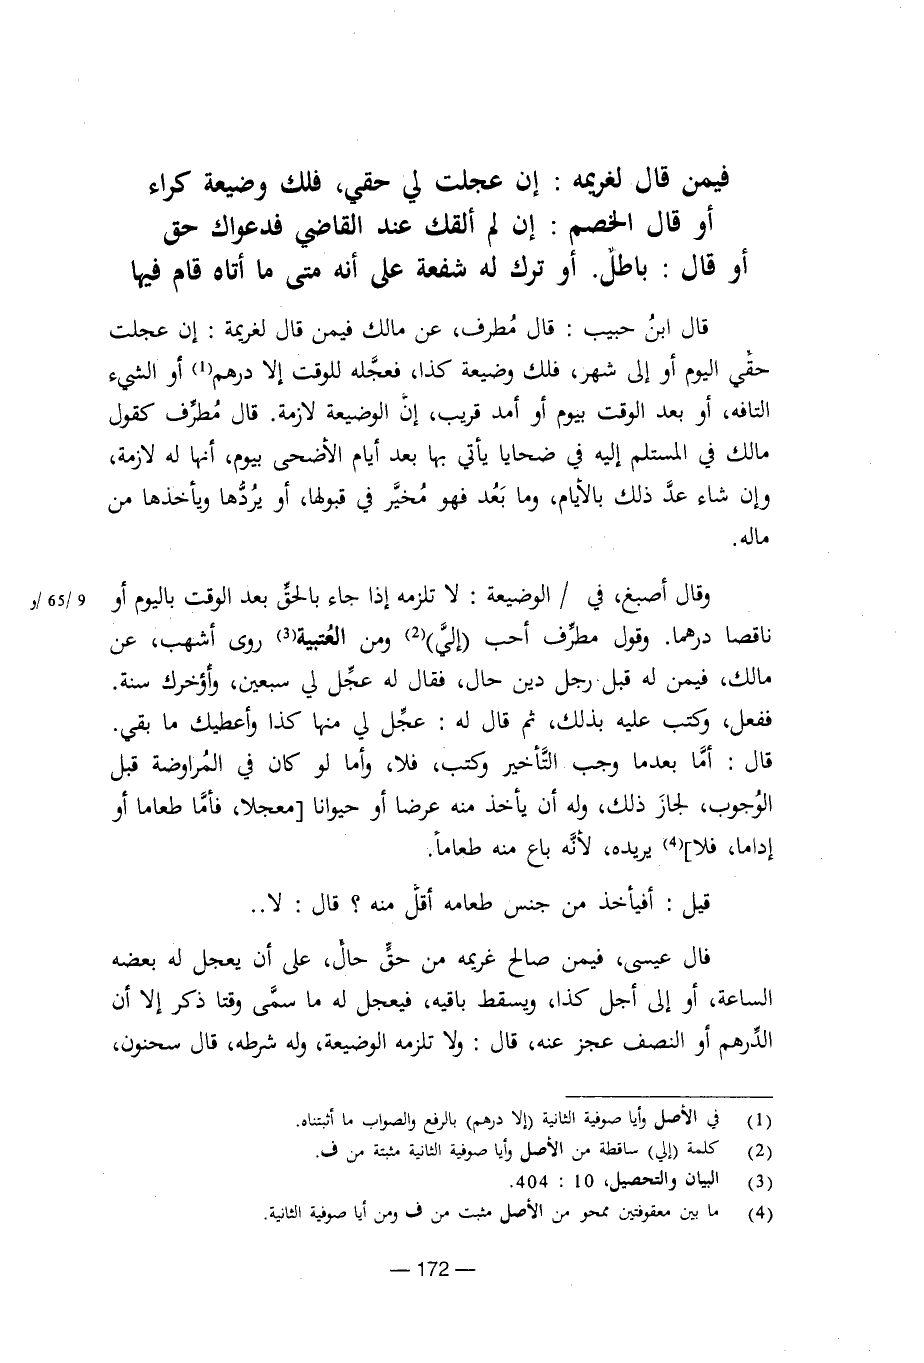 فيمن قال لغريمه : إن عجلت لي حقي، فلك وضيعة كراء
أو قال الخصم : إن لم ألقك عند القاضي فدعواك حق
أو قال : باطلٌ. أو ترك له شفعة على أنه متى ما أتاه قام فيها
قال ابنُ حبيب : قال مُطرف، عن مالك فيمن قال لغريمة : إن عجلت
حقِّي اليوم أو إلى شهر، فلك وضيعة كذا، فعجَّله للوقت إلا درهم(1) أو الشيء
التافه، أو بعد الوقت بيوم أو أمد قريب، إنَّ الوضيعة لازمة. قال مُطرِّف كقول
مالك في المستلم إليه في ضحايا يأتي بها بعد أيام الأضحى بيوم، أنها له لازمة،
وإن شاء عدَّ ذلك بالأيام، وما بَعُد فهو مُخيَّر في قبولها، أو يرُدُّها ويأخذها من
ماله.
وقال أصبغ، في / الوضيعة : لا تلزمه إذا جاء بالحقِّ بعد الوقت باليوم أو
9 /65 /و
ناقصا درهما. وقول مطرِّف أحب (إليَّ)(2) ومن العُتبية(3) روى أشهب، عن
مالك، فيمن له قبل رجل دين حال، فقال له عجِّل لي سبعين، وأؤخرك سنة.
ففعل، وكتب عليه بذلك، ثم قال له : عجِّل لي منها كذا وأعطيك ما بقي.
قال : أمَّا بعدما وجب التَّأخير وكتب، فلا، وأما لو كان في المُراوضة قبل
الوُجوب، لجازَ ذلك، وله أن يأخذ منه عرضا أو حيوانا [معجلا، فأمَّا طعاما أو
إداما، فلا](4) يريده، لأنَّه باع منه طعاماً.
قيل : أفيأخذ من جنس طعامه أقلَّ منه ؟ قال : لا..
قال عيسى، فيمن صالح غريمه من حقٍّ حالٍّ، على أن يعجل له بعضه
الساعة، أو إلى أجل كذا، ويسقط باقيه، فيعجل له ما سمَّى وقتا ذكر إلا أن
الدِّرهم أو النصف عجز عنه، قال : ولا تلزمه الوضيعة، وله شرطه، قال سحنون،
(1) في الأصل وأيا صوفية الثانية (إلا درهم) بالرفع والصواب ما أثبتناه.
(2) كلمة (إلي) ساقطة من الأصل وأيا صوفية الثانية مثبتة من ف.
(3) البيان والتحصيل، 10 : 404.
(4) ما بين معقوفتين ممحو من الأصل مثبت من ف ومن أيا صوفية الثانية.
— 172 —